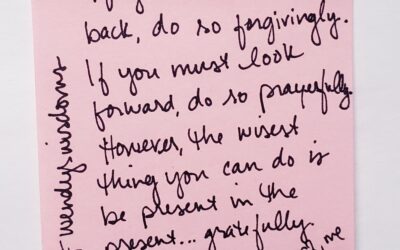 back, do so forgivingly.
If you must look
forward, do so prayerfully.
However, the wisest
thing you can do is
be present in the
present... gratefully.
wendywisdoms